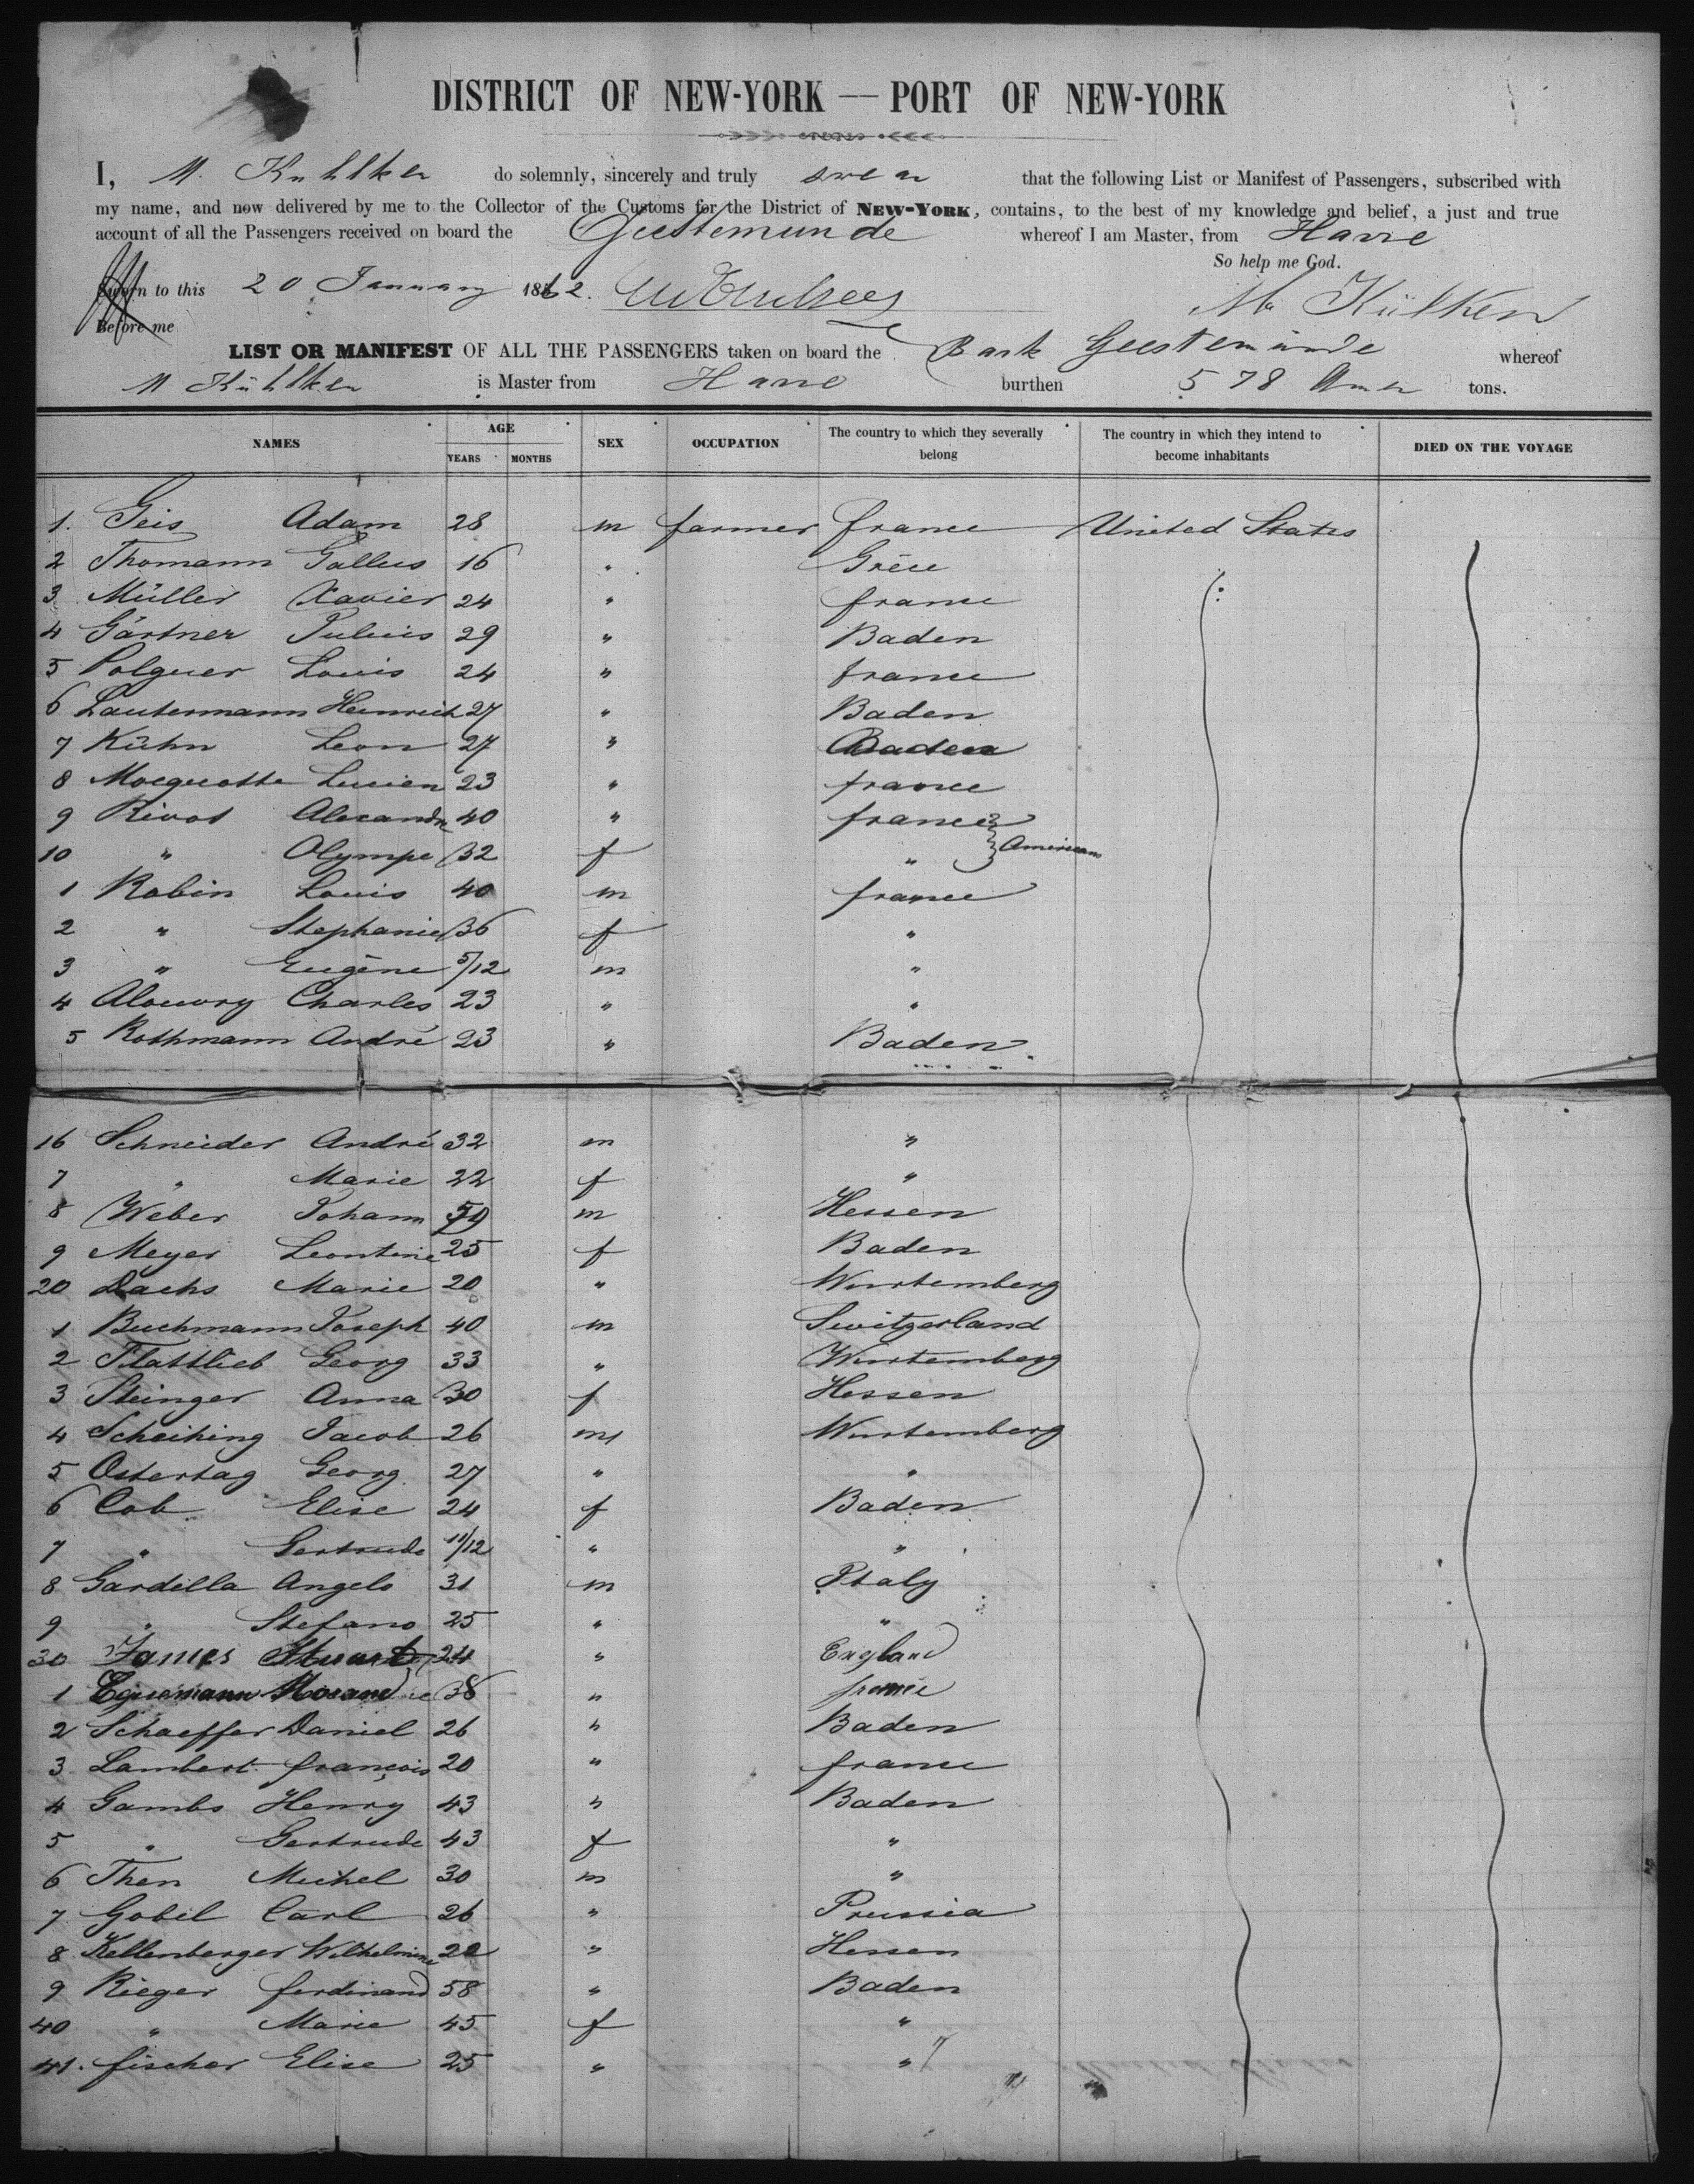 DISTRICT OF NEW-YORK — PORT OF NEW-YORK
I, M. Kuhlken do solemnly, sincerely and truly swear that the following List or Manifest of Passengers, subscribed with
my name, and now delivered by me to the Collector of the Customs for the District of NEW-YORK, contains, to the best of my knowledge and belief, a just and true
account of all the Passengers received on board the Geestemunde whereof I am Master, from Havre
So help me God.
Sworn to this 20 January 1862.
M. Külken
Before me
LIST OR MANIFEST OF ALL THE PASSENGERS taken on board the Bark Geestemünde whereof
M Kühlken is Master from Havre burthen 578 Amer tons.
NAMES AGE YEARS MONTHS SEX OCCUPATION The country to which they severally belong The country in which they intend to become inhabitants DIED ON THE VOYAGE
1. Geis Adam 28 m farmer france United States
2 Thomann Gallus 16 "
3 Müller Xavier 24 " france
4 Gärtner Julius 29 " Baden
5 Polguer Louis 24 " france
6 Lautermann Heinrich 27 " Baden
7 Kühn Leon 27 " Baden
8 Mocquotte Lucien 23 " france
9 Rivot Alexandre 40 " france } American
10 " Olympe 32 f "
1 Robin Louis 40 m france
2 " Stephanie 36 f "
3 " Eugène 5/12 m "
4 Alouvry Charles 23 " "
5 Rothmann André 23 " Baden.
16 Schneider André 32 m "
7 " Marie 22 f "
8 Weber Johann m Hessen
9 Meyer Leontine 25 f Baden
20 Dachs Marie 20 " Wurtemberg
1 Buchmann Joseph 40 m Switzerland
2 Flattlieb Georg 33 " Wurtemberg
3 Steinger Anna 30 f Hessen
4 Scheihing Jacob 26 m Wurtemberg
5 Ostertag Georg 27 " "
6 Cob Elise 24 f Baden
7 " Gertrude 11/12 " "
8 Gardella Angelo 31 m Italy
9 " Stefano 25 " "
30 James Stuart 24 " England
1 38 " france
2 Schaeffer Daniel 26 " Baden
3 Lambert françois 20 " france
4 Gambs Henry 43 " Baden
5 " Gertrude 43 f "
6 Then Michel 30 m "
7 Gobel Carl 26 " Prussia
8 Kellenberger Wilhelmine 22 " Hessen
9 Rieger ferdinand 58 " Baden
40 " Marie 45 f "
41. fischer Elise 25 " "